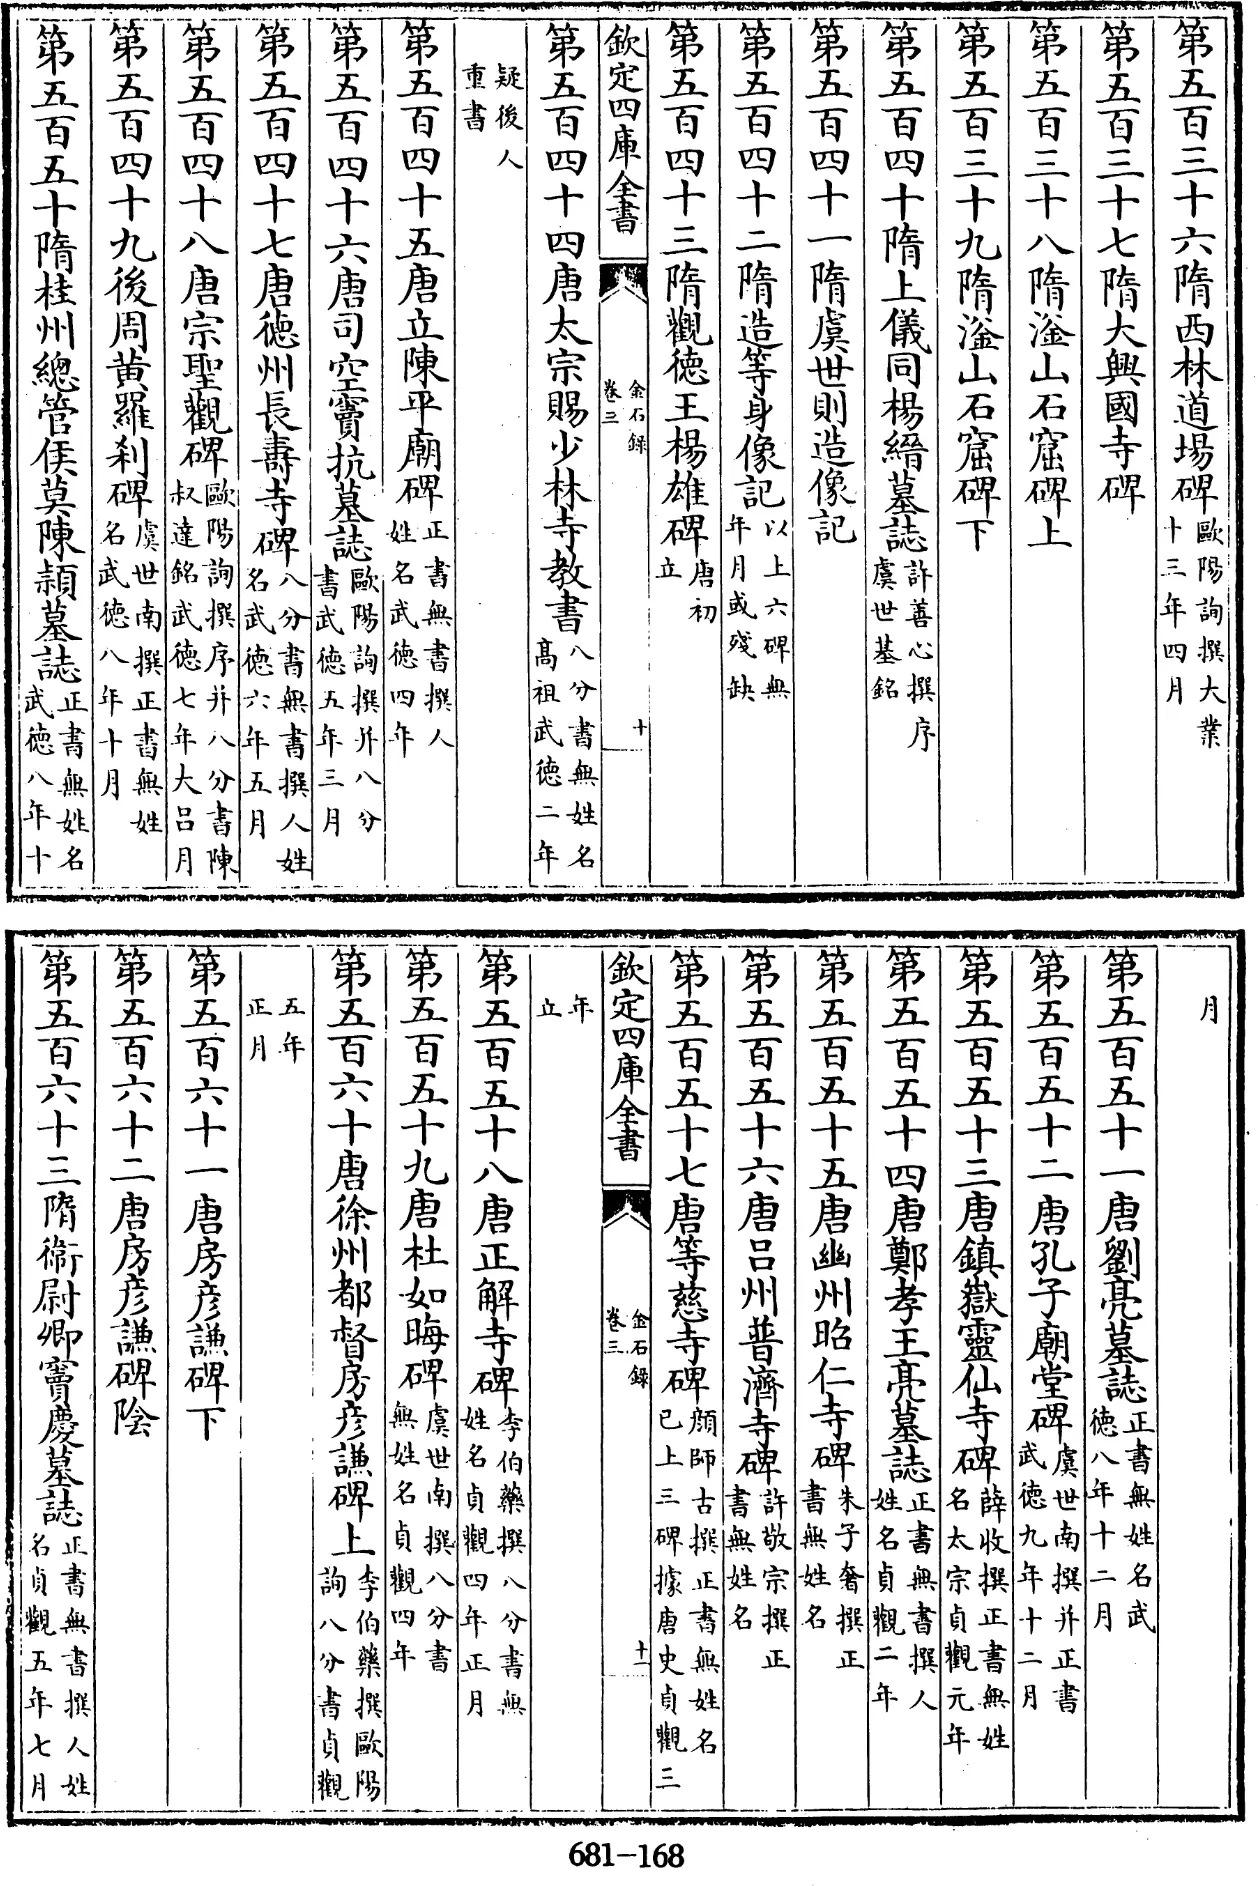 第五百三十六隋西林道場碑歐陽詢撰大業十三年四月
第五百三十七隋大興國寺碑
第五百三十八隋滏山石窟碑上
第五百三十九隋滏山石窟碑下
第五百四十隋上儀同楊縉墓誌許善心撰序虞世基銘
第五百四十一隋虞世則造像記
第五百四十二隋造等身像記以上六碑無年月或殘缺
第五百四十三隋觀德王楊雄碑唐初立
欽定四庫全書 金石録卷三 十
第五百四十四唐太宗賜少林寺教書八分書無姓名高祖武德二年
疑後人重書
第五百四十五唐立陳平廟碑正書無書撰人姓名武德四年
第五百四十六唐司空竇抗墓誌歐陽詢撰并八分書武德五年三月
第五百四十七唐德州長壽寺碑八分書無書撰人姓名武德六年五月
第五百四十八唐宗聖觀碑歐陽詢撰序并八分書陳叔達銘武德七年大呂月
第五百四十九後周黃羅刹碑虞世南撰正書無姓名武德八年十月
第五百五十隋桂州總管侯莫陳頴墓誌正書無姓名武德八年十
月
第五百五十一唐劉亮墓誌正書無姓名武德八年十二月
第五百五十二唐孔子廟堂碑虞世南撰并正書武德九年十二月
第五百五十三唐鎮嶽靈仙寺碑薛收撰正書無姓名太宗貞觀元年
第五百五十四唐鄭孝王亮墓誌正書無書撰人姓名貞觀二年
第五百五十五唐豳州昭仁寺碑朱子奢撰正書無姓名
第五百五十六唐呂州普濟寺碑許敬宗撰正書無姓名
第五百五十七唐等慈寺碑顔師古撰正書無姓名已上三碑據唐史貞觀三
欽定四庫全書 金石録卷三 十一
年立
第五百五十八唐正解寺碑李伯藥撰八分書無姓名貞觀四年正月
第五百五十九唐杜如晦碑虞世南撰八分書無姓名貞觀四年
第五百六十唐徐州都督房彦謙碑上李伯藥撰歐陽詢八分書貞觀
五年正月
第五百六十一唐房彦謙碑下
第五百六十二唐房彦謙碑陰
第五百六十三隋衛尉卿竇慶墓誌正書無書撰人姓名貞觀五年七月
681-168